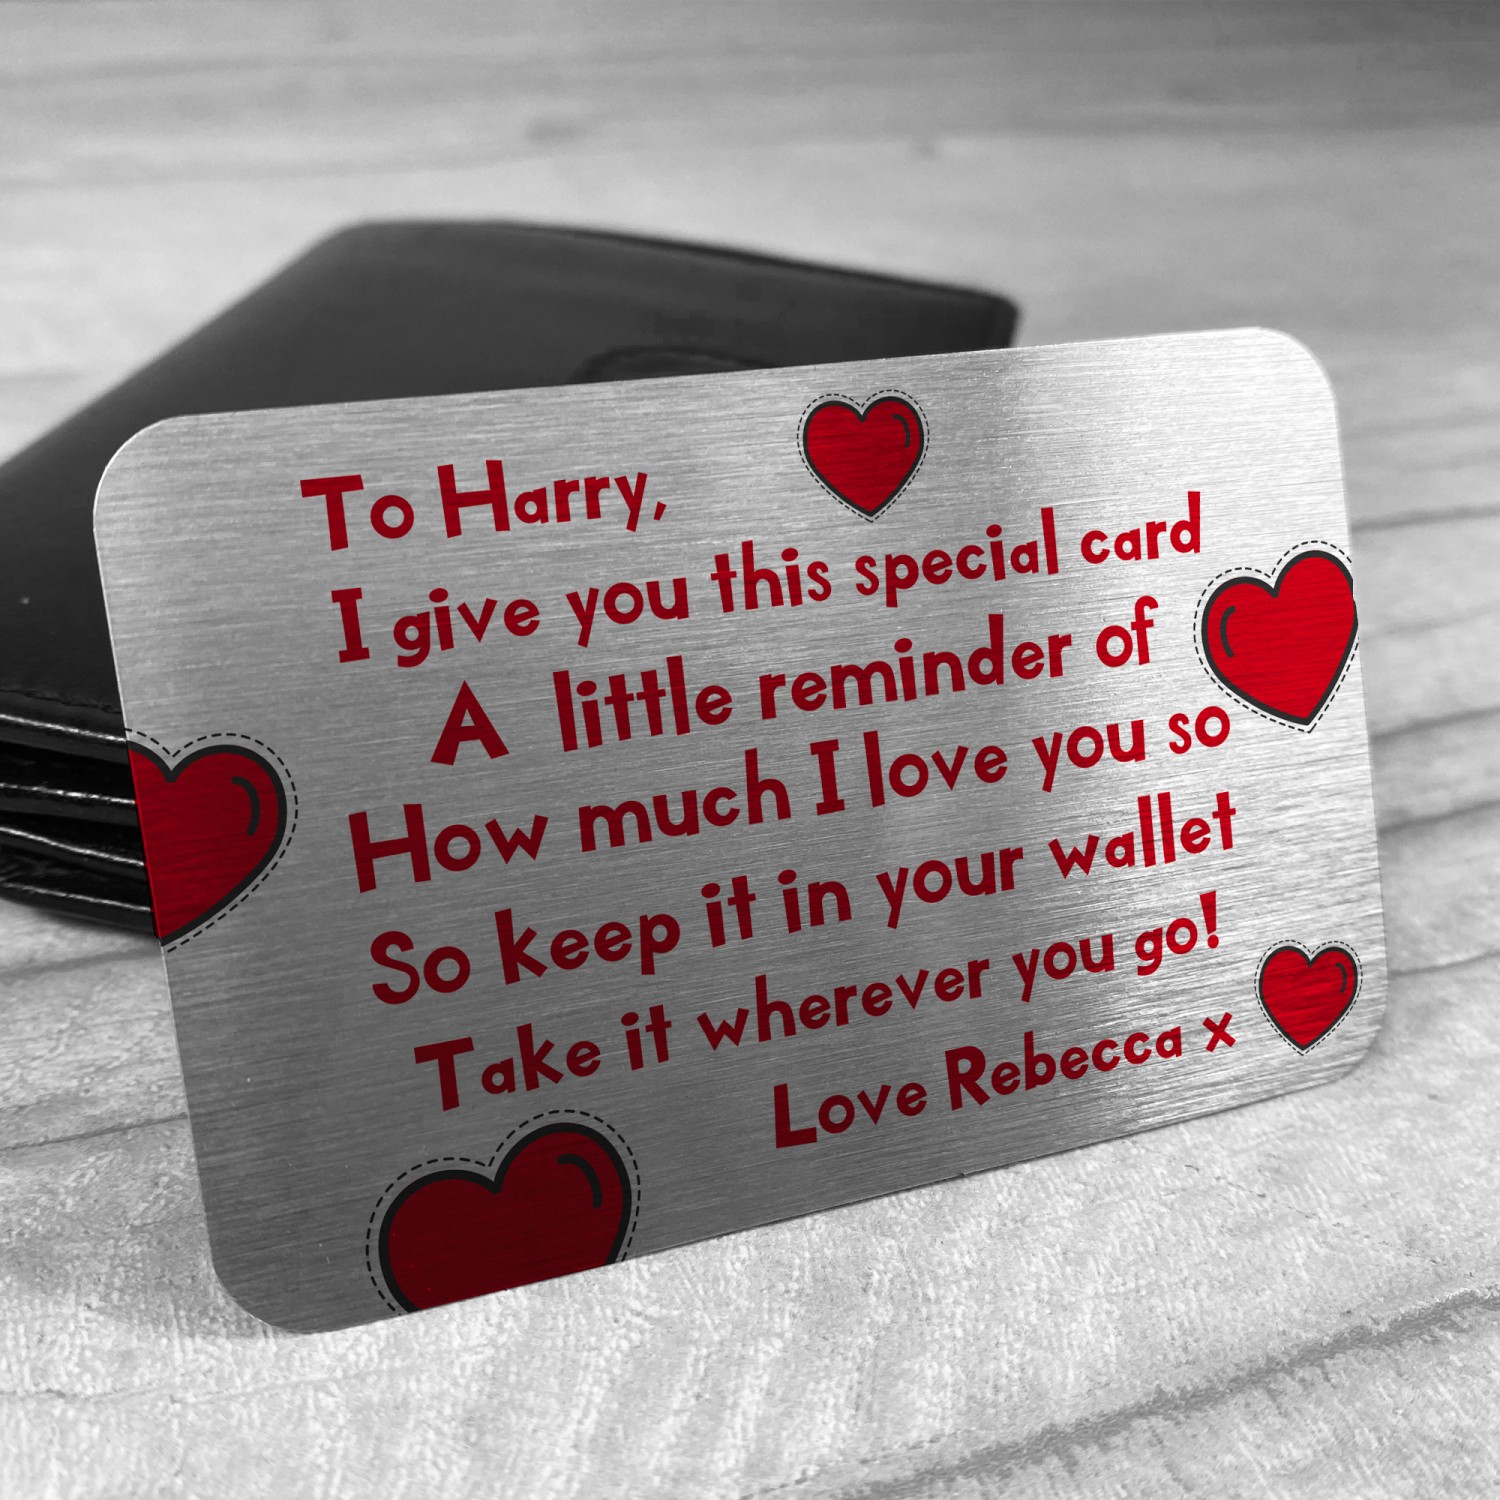 To Harry,
I give you this special card
A little reminder of
How much I love you so
So keep it in your wallet
Take it wherever you go!
Love Rebecca x